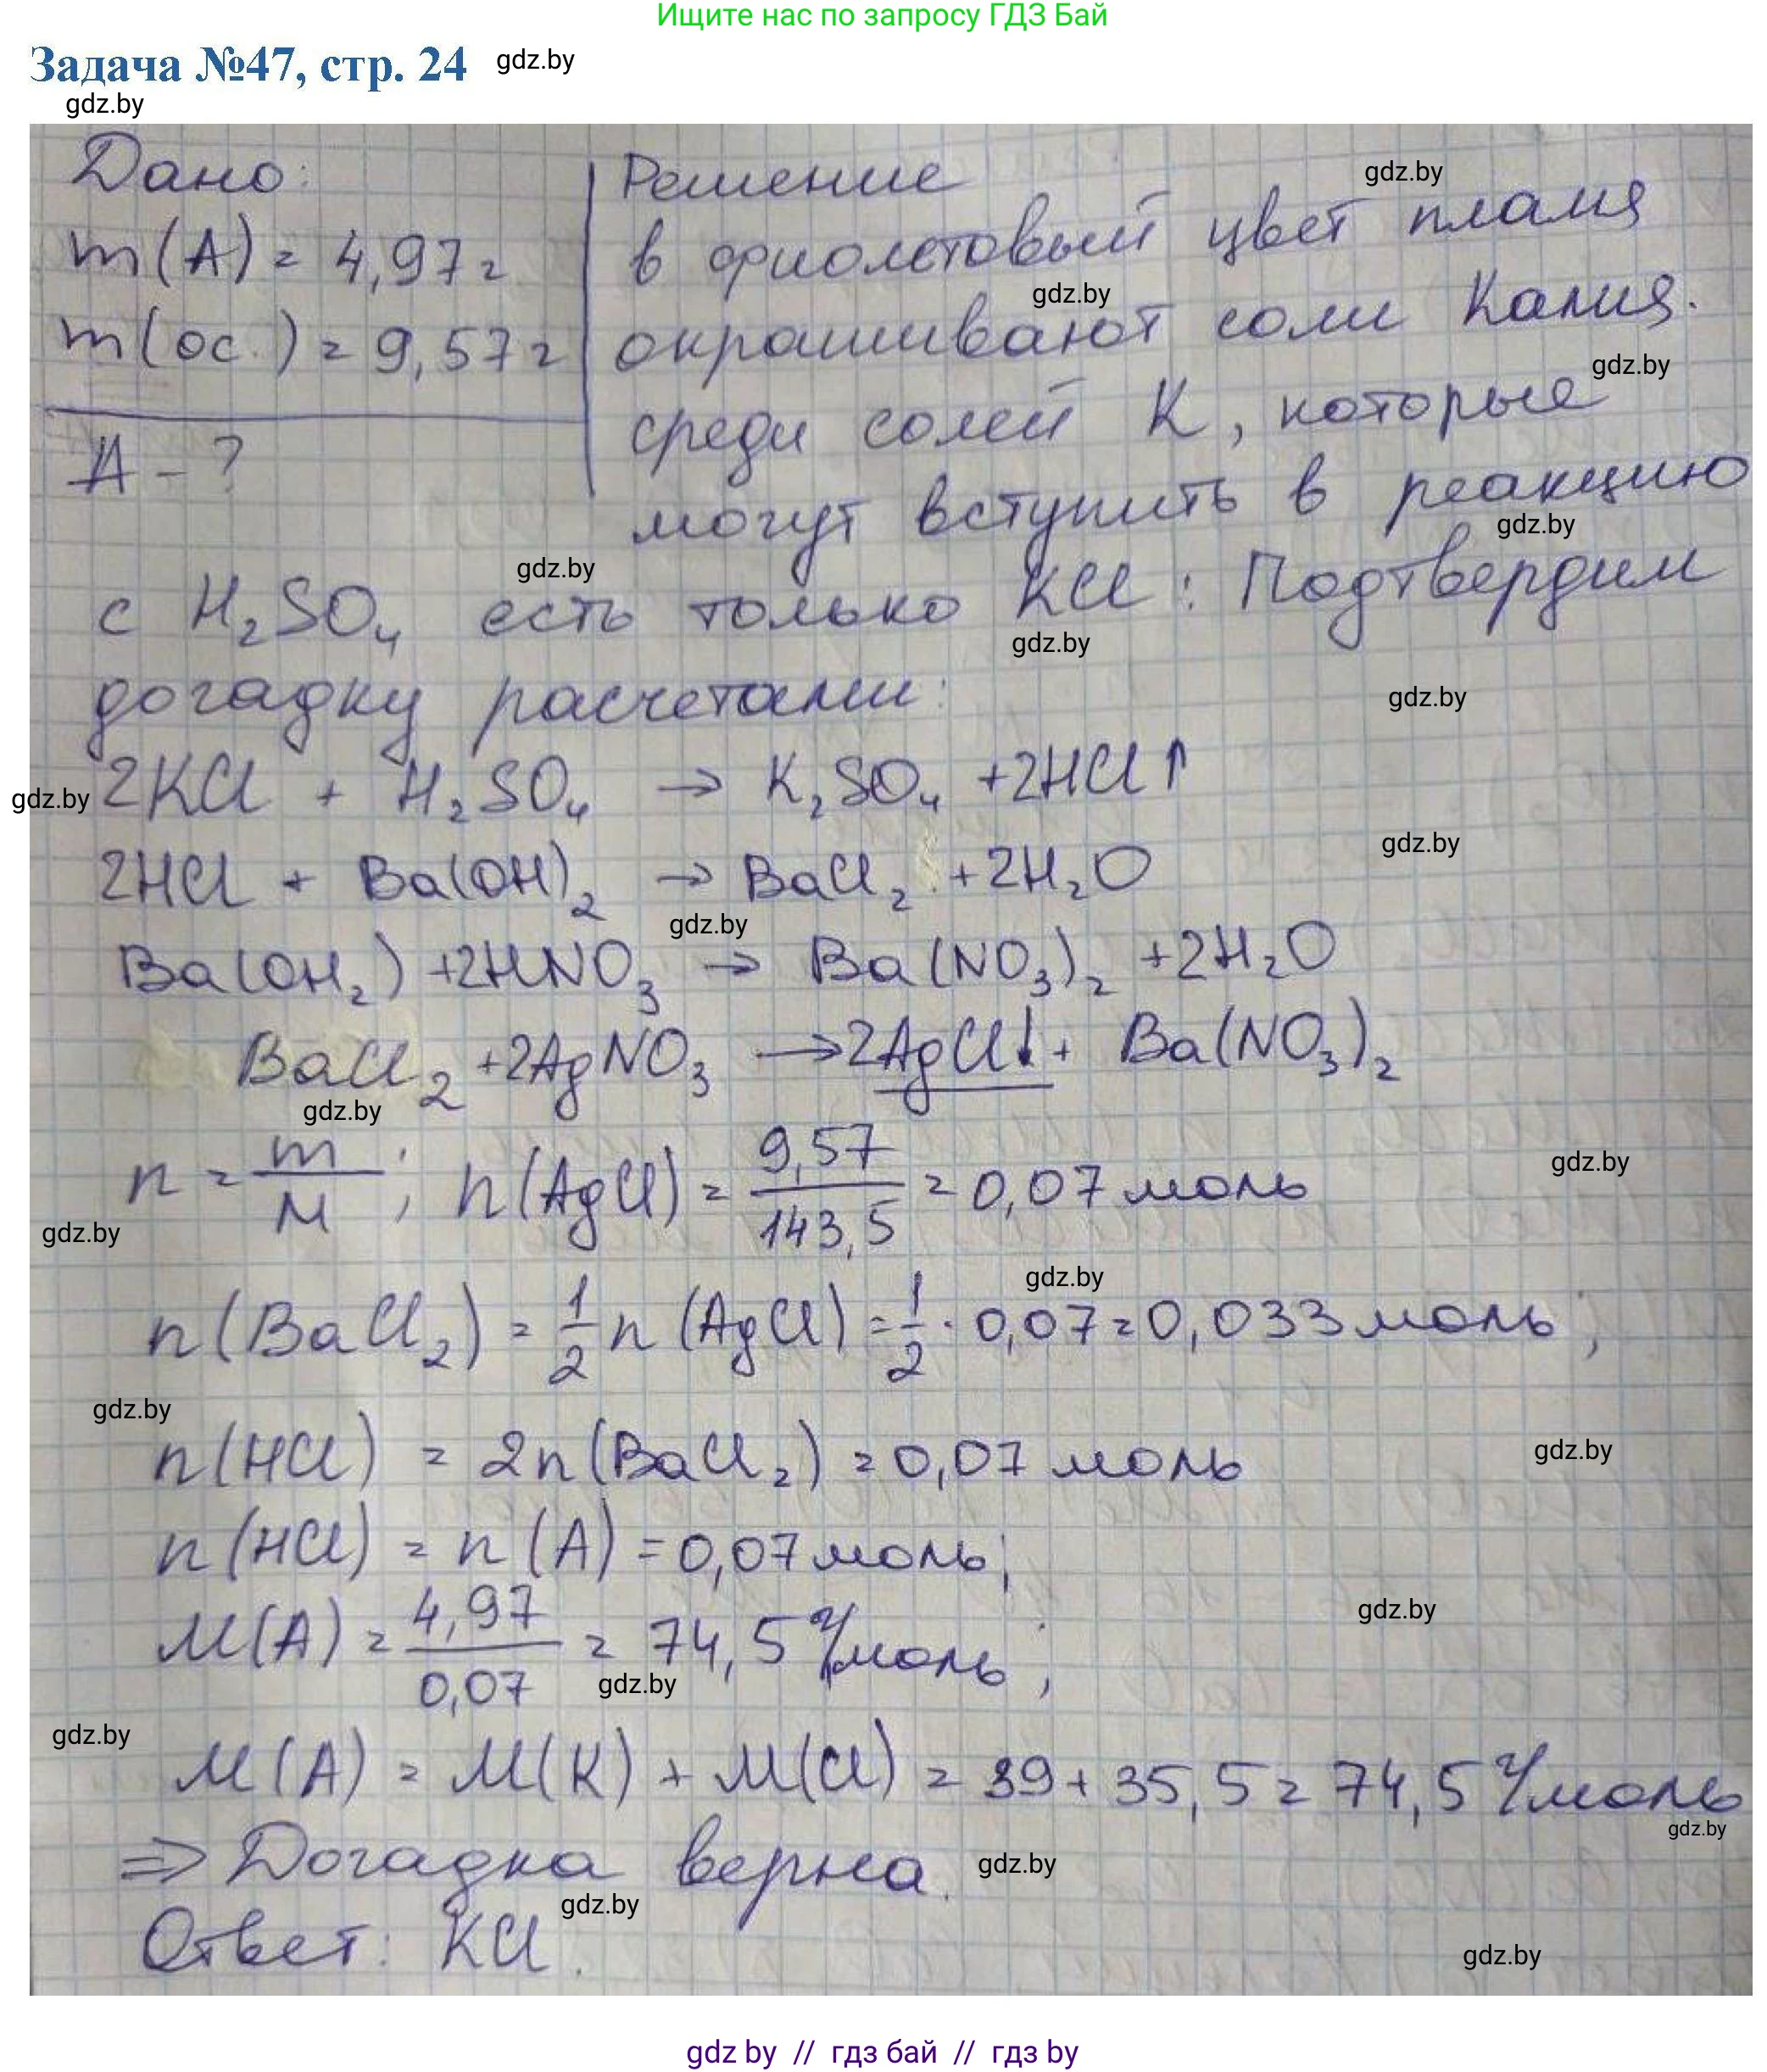 Ищите нас по запросу ГДЗ Бай
Задача №47, стр. 24 gdz.by
gdz.by
Дано: Решение gdz.by
m(A) = 4,97г в фиолетовый цвет пламя
gdz.by
m(ос.) = 9,57г окрашивают соли Калия.
gdz.by
A - ? среди солей K, которые
могут вступить в реакцию
gdz.by
gdz.by
с H₂SO₄ есть только KCl: Подтвердим
gdz.by
догадку расчетами:
gdz.by
gdz.by 2KCl + H₂SO₄ → K₂SO₄ + 2HCl↑
gdz.by
2HCl + Ba(OH)₂ → BaCl₂ + 2H₂O
gdz.by
Ba(OH₂) + 2HNO₃ → Ba(NO₃)₂ + 2H₂O
BaCl₂ + 2AgNO₃ → 2AgCl↓ + Ba(NO₃)₂
gdz.by
n = m/M ; n(AgCl) = 9,57/143,5 = 0,07 моль
gdz.by
gdz.by
gdz.by
n(BaCl₂) = 1/2 n(AgCl) = 1/2 · 0,07 = 0,033 моль;
gdz.by
n(HCl) = 2n(BaCl₂) = 0,07 моль
gdz.by
n(HCl) = n(A) = 0,07 моль;
M(A) = 4,97/0,07 = 74,5 г/моль;
gdz.by
gdz.by
gdz.by
M(A) = M(K) + M(Cl) = 39 + 35,5 = 74,5 г/моль
gdz.by
⇒ Догадка верна.
gdz.by
gdz.by
Ответ: KCl.
gdz.by
gdz by // гдз бай // гдз by